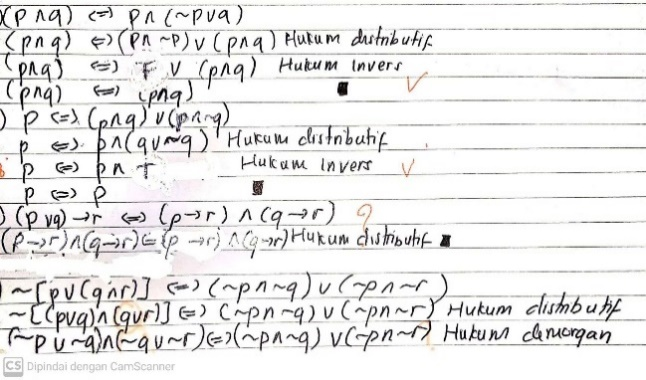 ) (p ∧ q) <=> p ∧ (~p ∨ q)
(p ∧ q) <=> (p ∧ ~p) ∨ (p ∧ q) Hukum distributif
(p ∧ q) <=> F ∨ (p ∧ q) Hukum invers
(p ∧ q) <=> (p ∧ q) ■ ✓
) p <=> (p ∧ q) ∨ (p ∧ ~q)
p <=> p ∧ (q ∨ ~q) Hukum distributif
p <=> p ∧ T Hukum invers ✓
p <=> p ■
) (p ∨ q) → r <=> (p → r) ∧ (q → r) ?
(p → r) ∧ (q → r) <=> (p → r) ∧ (q → r) Hukum distributif ■
) ~[p ∨ (q ∧ r)] <=> (~p ∧ ~q) ∨ (~p ∧ ~r)
~[(p ∨ q) ∧ (q ∨ r)] <=> (~p ∧ ~q) ∨ (~p ∧ ~r) Hukum distributif
(~p ∨ ~q) ∧ (~q ∨ ~r) <=> (~p ∧ ~q) ∨ (~p ∧ ~r) Hukum demorgan
CS Dipindai dengan CamScanner